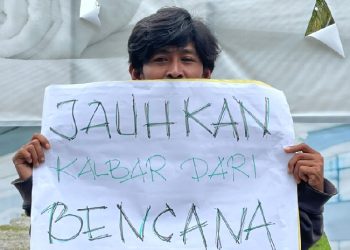 JAUHKAN
KALBAR DARI
BENCANA